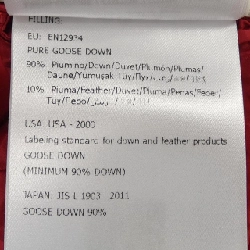 FILLING
EU: EN12934
PURE GOOSE DOWN
90% Piumino/Down/Duvet/Plumón/Plumas/
Daune/Yumuşak Tüy/
10% Piuma/Feather/Duvet/Pluma/Penas/Feder/
Tüy/
USA: USA - 2000
Labeling standard for down and feather products
GOOSE DOWN
(MINIMUM 90% DOWN)
JAPAN: JIS L 1903 - 2011
GOOSE DOWN 90%